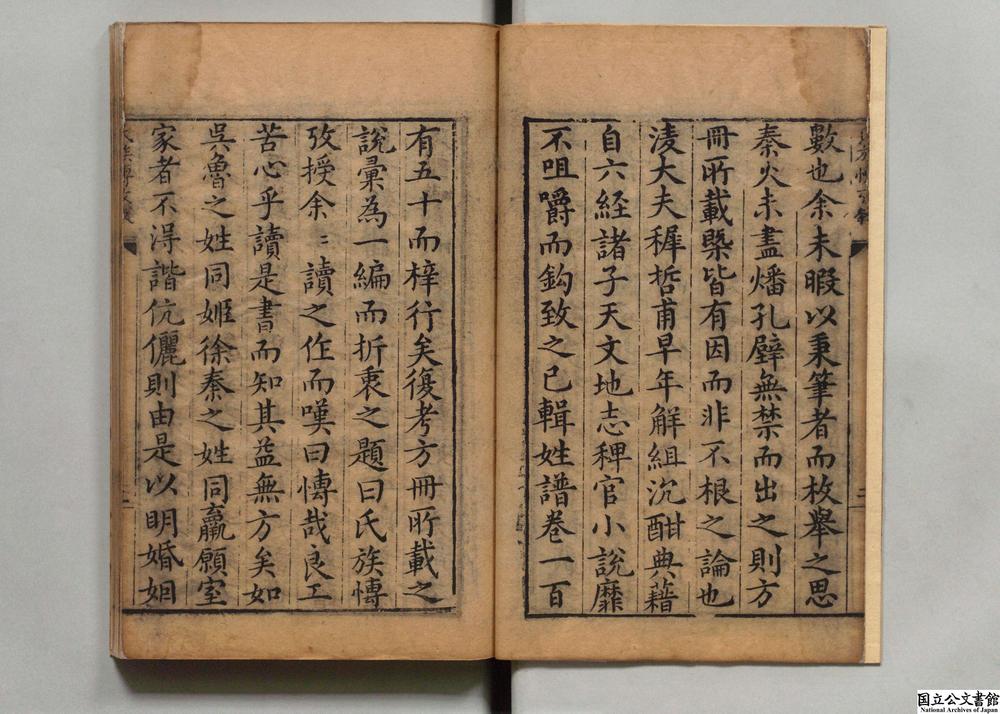 數也余未暇以秉筆者而枚舉之思
秦火未盡燔孔壁無禁而出之則方
冊所載槩皆有因而非不根之論也
淩大夫穉哲甫早年解組沉酣典藉
自六経諸子天文地志稗官小說靡
不咀嚼而鈎致之已輯姓譜卷一百
有五十而梓行矣復考方冊所載之
說彙為一編而折衷之題曰氏族愽
攷授余〻讀之作而嘆曰愽哉良工
苦心乎讀是書而知其益無方矣如
吳魯之姓同姬徐秦之姓同嬴願室
家者不淂諧伉儷則由是以明婚姻
国立公文書館
National Archives of Japan